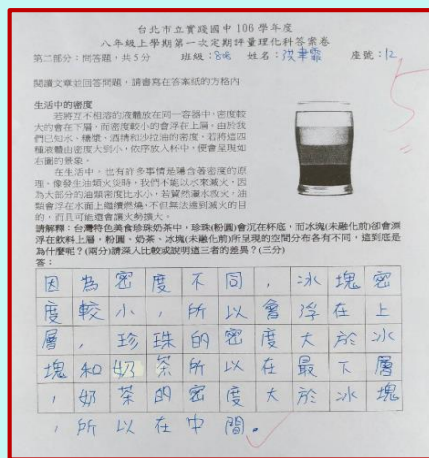 台北市立實踐國中 106 學年度
八年級上學期第一次定期評量理化科答案卷
第二部分：問答題，共5分 班級：8 姓名： 座號：12
5
閱讀文章並回答問題，請書寫在答案紙的方格內
生活中的密度
若將互不相溶的液體放在同一容器中，密度較
大的會在下層，而密度較小的會浮在上層。由於我
們已知水、糖漿、酒精和沙拉油的密度，若將這四
種液體由密度大到小，依序放入杯中，便會呈現如
右圖的景象。
在生活中，也有許多事情是隱含著密度的原
理，像發生油類火災時，我們不能以水來滅火，因
為大部分的油類密度比水小，若貿然灑水救火，油
類會浮在水面上繼續燃燒，不但無法達到滅火的目
的，而且可能還會讓火勢擴大。
請解釋：台灣特色美食珍珠奶茶中，珍珠(粉圓)會沉在杯底，而冰塊(未融化前)卻會漂
浮在飲料上層，粉圓、奶茶、冰塊(未融化前)所呈現的空間分布各有不同，這到底是
為什麼呢？(兩分)請深入比較或說明這三者的差異？(三分)
答：
因為密度不同，冰塊密
度較小，所以會浮在上
層，珍珠的密度大於冰
塊和奶茶所以在最下層
，奶茶的密度大於冰塊
，所以在中間。